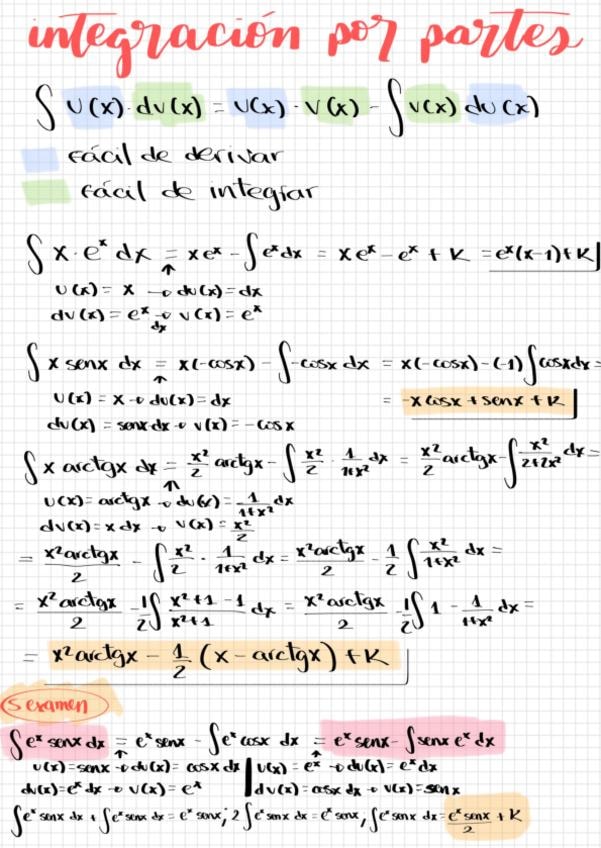 integración por partes
∫ u(x)·dv(x) = u(x)·v(x) - ∫ v(x) du(x)
fácil de derivar
fácil de integrar
∫ x·eˣ dx = xeˣ - ∫eˣdx = xeˣ - eˣ + K = eˣ(x-1)+K
u(x) = x → du(x) = dx
dv(x) = eˣ dx → v(x) = eˣ
∫ x senx dx = x(-cosx) - ∫-cosx dx = x(-cosx)-(-1)∫cosxdx =
u(x) = x → du(x) = dx = -x cosx + senx + K
dv(x) = senx dx → v(x) = -cosx
∫ x arctgx dx = x²/2 arctgx - ∫ x²/2 · 1/1+x² dx = x²/2 arctgx - ∫ x²/2+2x² dx =
u(x) = arctgx → du(x) = 1/1+x² dx
dv(x) = x dx → v(x) = x²/2
= x²arctgx/2 - ∫ x²/2 · 1/1+x² dx = x²arctgx/2 - 1/2 ∫ x²/1+x² dx =
= x²arctgx/2 - 1/2 ∫ x²+1-1/x²+1 dx = x²arctgx/2 - 1/2 ∫ 1 - 1/1+x² dx =
= x²arctgx - 1/2 (x - arctgx) + K
examen
∫eˣ senx dx = eˣ senx - ∫eˣ cosx dx = eˣ senx - ∫senx eˣ dx
u(x) = senx → du(x) = cosx dx | u(x) = eˣ → du(x) = eˣ dx
dv(x) = eˣ dx → v(x) = eˣ | dv(x) = cosx dx → v(x) = senx
∫eˣ senx dx + ∫eˣ senx dx = eˣ senx; 2∫eˣ senx dx = eˣ senx, ∫eˣ senx dx = eˣ senx/2 + K